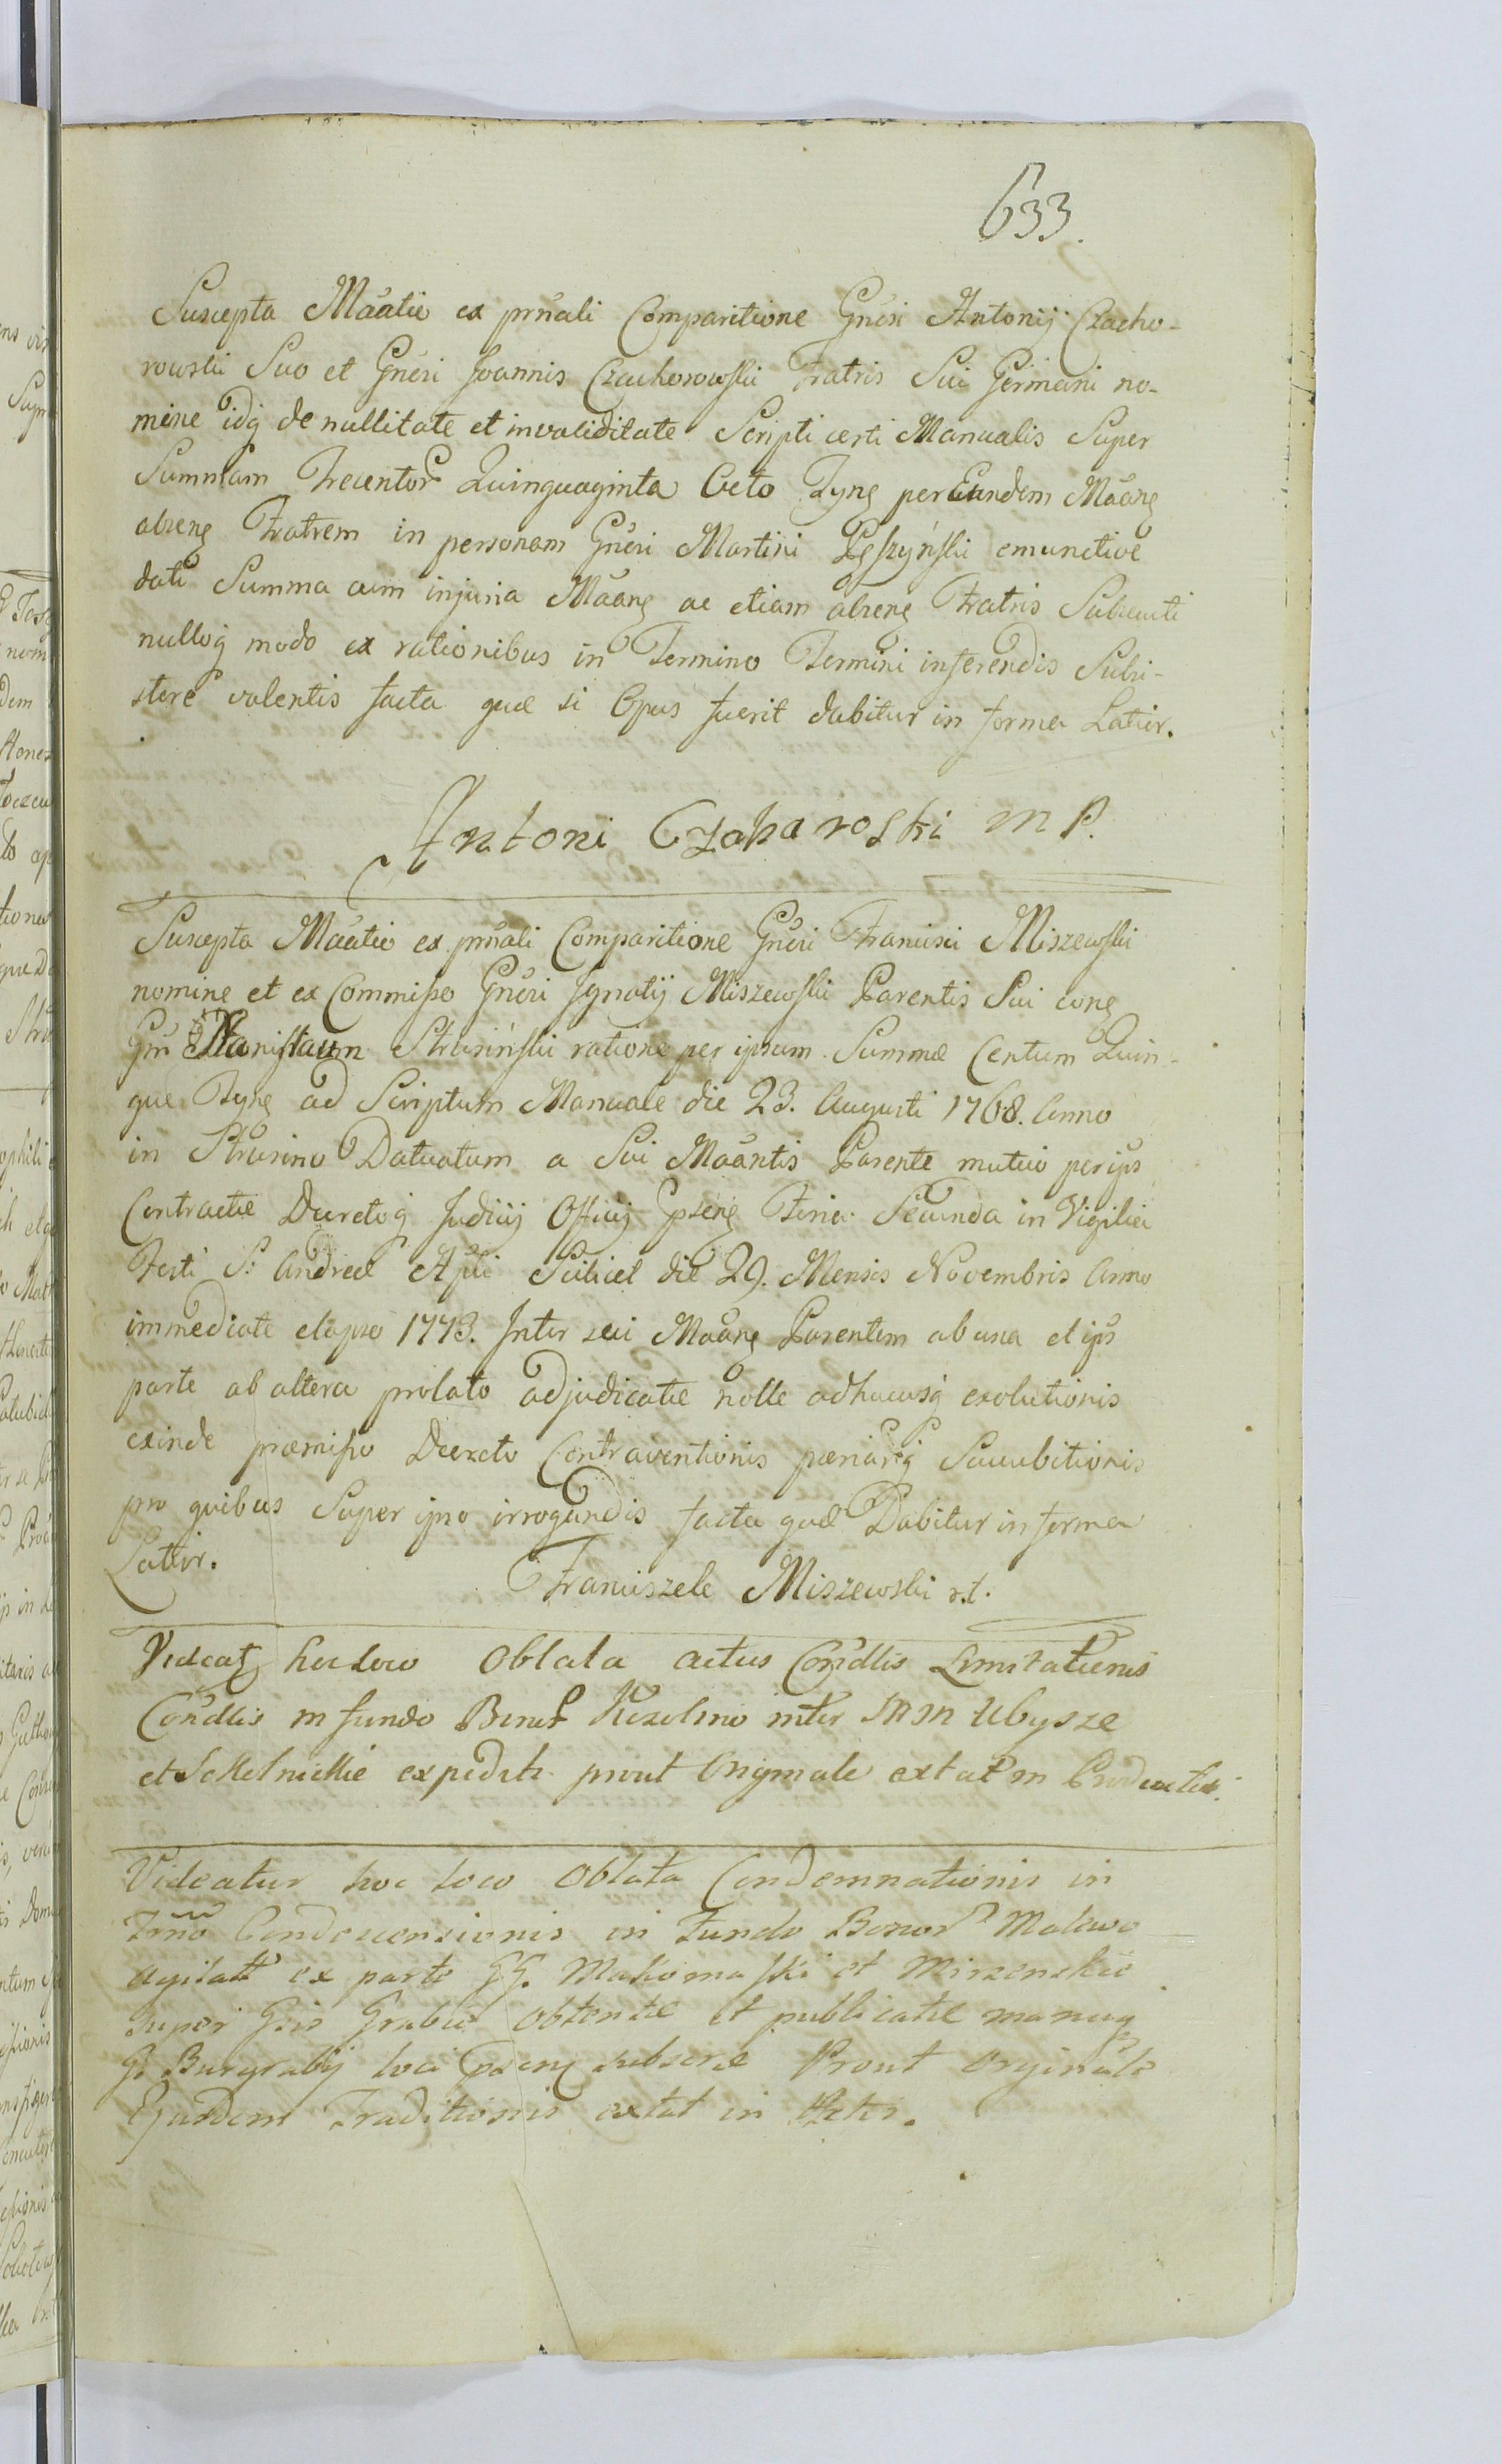 633.
Suscepta Mãatio ex prñali Comparitione Gñosi Antonij Czacho-
rowski Suo et Gñosi Joannis Czachorowski Fratris Sui Germani no-
mine idq de nullitate et invaliditate Scripti certi Manualis Super
Summam Trecentor Quinquaginta Octo Tyng per Eundem Mãang
absenq Fratrem in personam Gñosi Martini emunctive
dati Summa cum injuria Mãang ac etiam absenq Fratris Subsecuti
nulloq modo ex rationibus in Termino Termini inferendis Subsi-
stere valentis facta quæ si Opus fuerit dabitur in forma Latior.
Antoni Czaharoski m P.
Suscepta Mãatio ex prñali Comparitione Gñosi Francisci Miszewski
nomine et ex Commisso Gñosi Ignatij Miszewski Parentis Sui
Gm Stanislaum Strusiński ratione per ipsum Summæ Centum Quin-
que Tyng ad Scriptum Manuale die 23. Augusti 1768. Anno
in Strusino Datuatum a Sui Mãantis Parente mutuo per ips
Contractæ Decretoq Judicij Officij Feria Secunda in Vigilia
Festi S. Andreæ Apli Scilicet die 29. Mensis Novembris Anno
immediate elapso 1773. Inter sui Mãang Parentem ab una et ips
parte ab altera prolato adjudicatæ nolle adhucusq exolutionis
exinde præmisso Decreto Contraventionis pænarq Succubitionis
pro quibus Super ipso irrogandis facta quæ Dabitur in forma
Latior.
Franciszek Miszewski
Videat hoc loco Oblata actus Limitationis
in fundo Bonor inter MM Ubysze
et expedit prout Originale extat in
Videatur hoc loco Oblata Condemnationis in
Tmno Condescensionis in Fundo Bonor
agitat ex parte GG. Makomaski et
super Grabie obtentæ et publicatæ manuq
G. Burgrabij loci subscr Prout Originale
Ejusdem Traditionis extat in Actis.